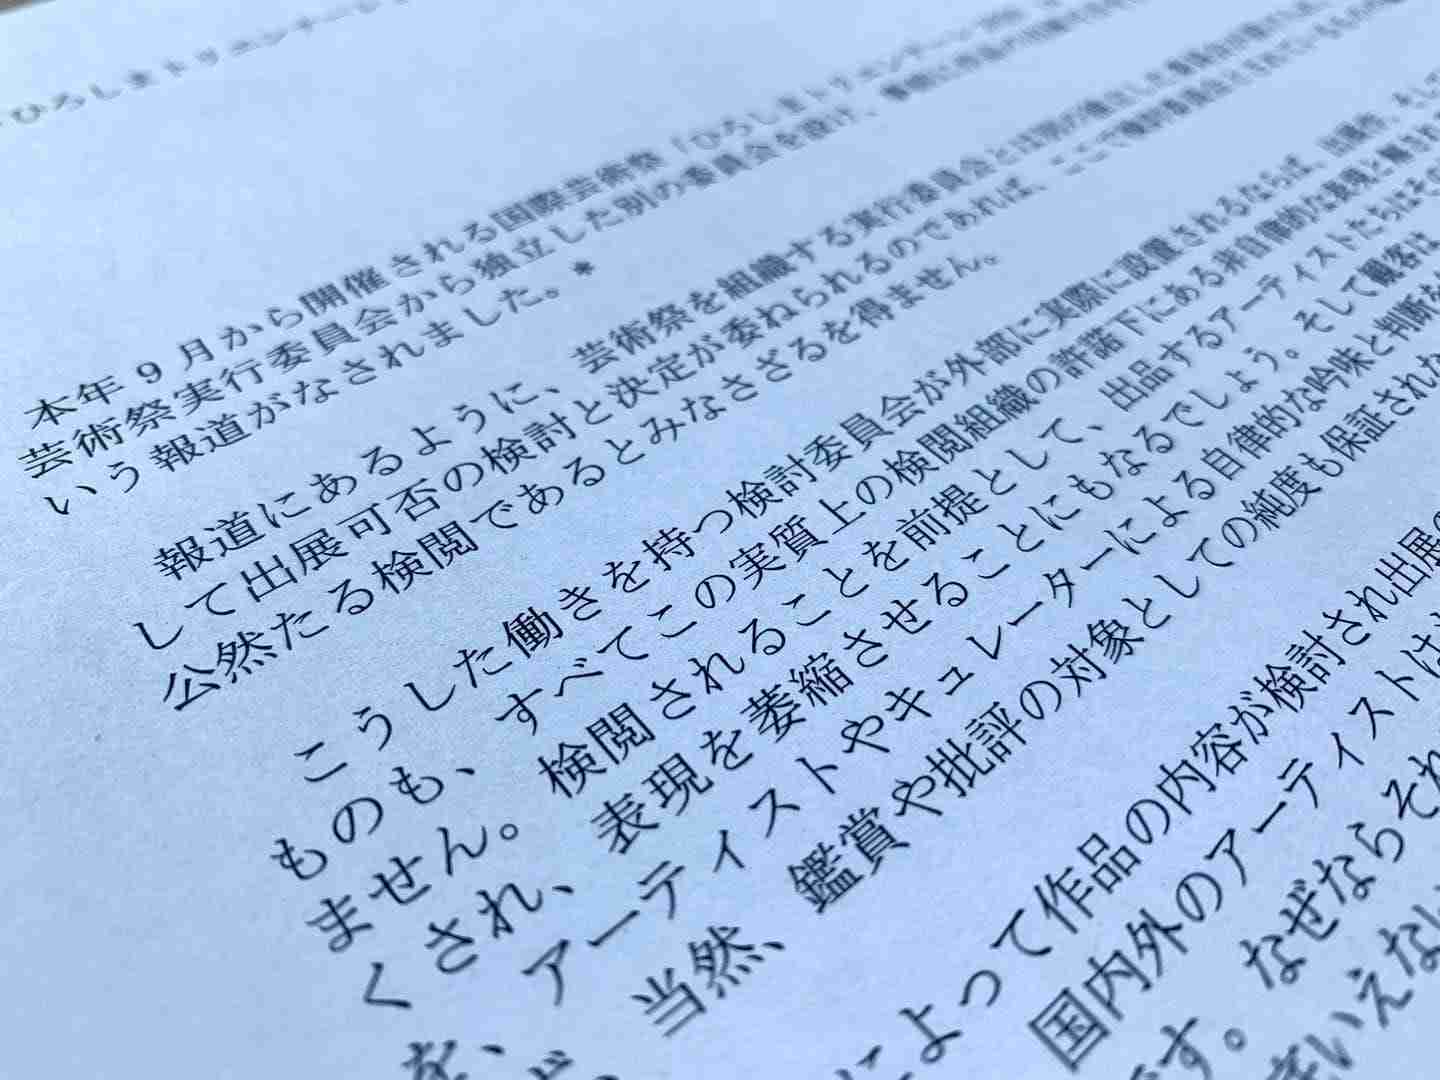 ひろしまトリエンナーレ
本年9月から開催される国際芸術祭「ひろしまトリエンナーレ
芸術祭実行委員会から独立した別の委員会を設け、
いう報道がなされました。*
報道にあるように、芸術祭を組織する実行委員会とは別の独立した委員会が
して出展可否の検討と決定が委ねられるのであれば、ここで検討委員会とされているものの
公然たる検閲であるとみなさざるを得ません。
こうした働きを持つ検討委員会が外部に実際に設置されるならば、出展作、そして
ものも、すべてこの実質上の検閲組織の許諾下にある非自律的な表現と
ません。検閲されることを前提として、出品するアーティストたちはその
くされ、表現を萎縮させることにもなるでしょう。そして観客は
を、アーティストやキュレーターによる自律的な吟味と判断
当然、鑑賞や批評の対象としての純度も保証されな
によって作品の内容が検討され出展の
国内外のアーティストは
です。なぜならそれ
いえない